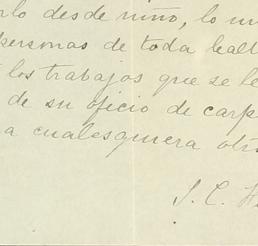 rlo desde niño, lo
personas de toda
los trabajos que se le
de su oficio de carp
a cualesquiera otro